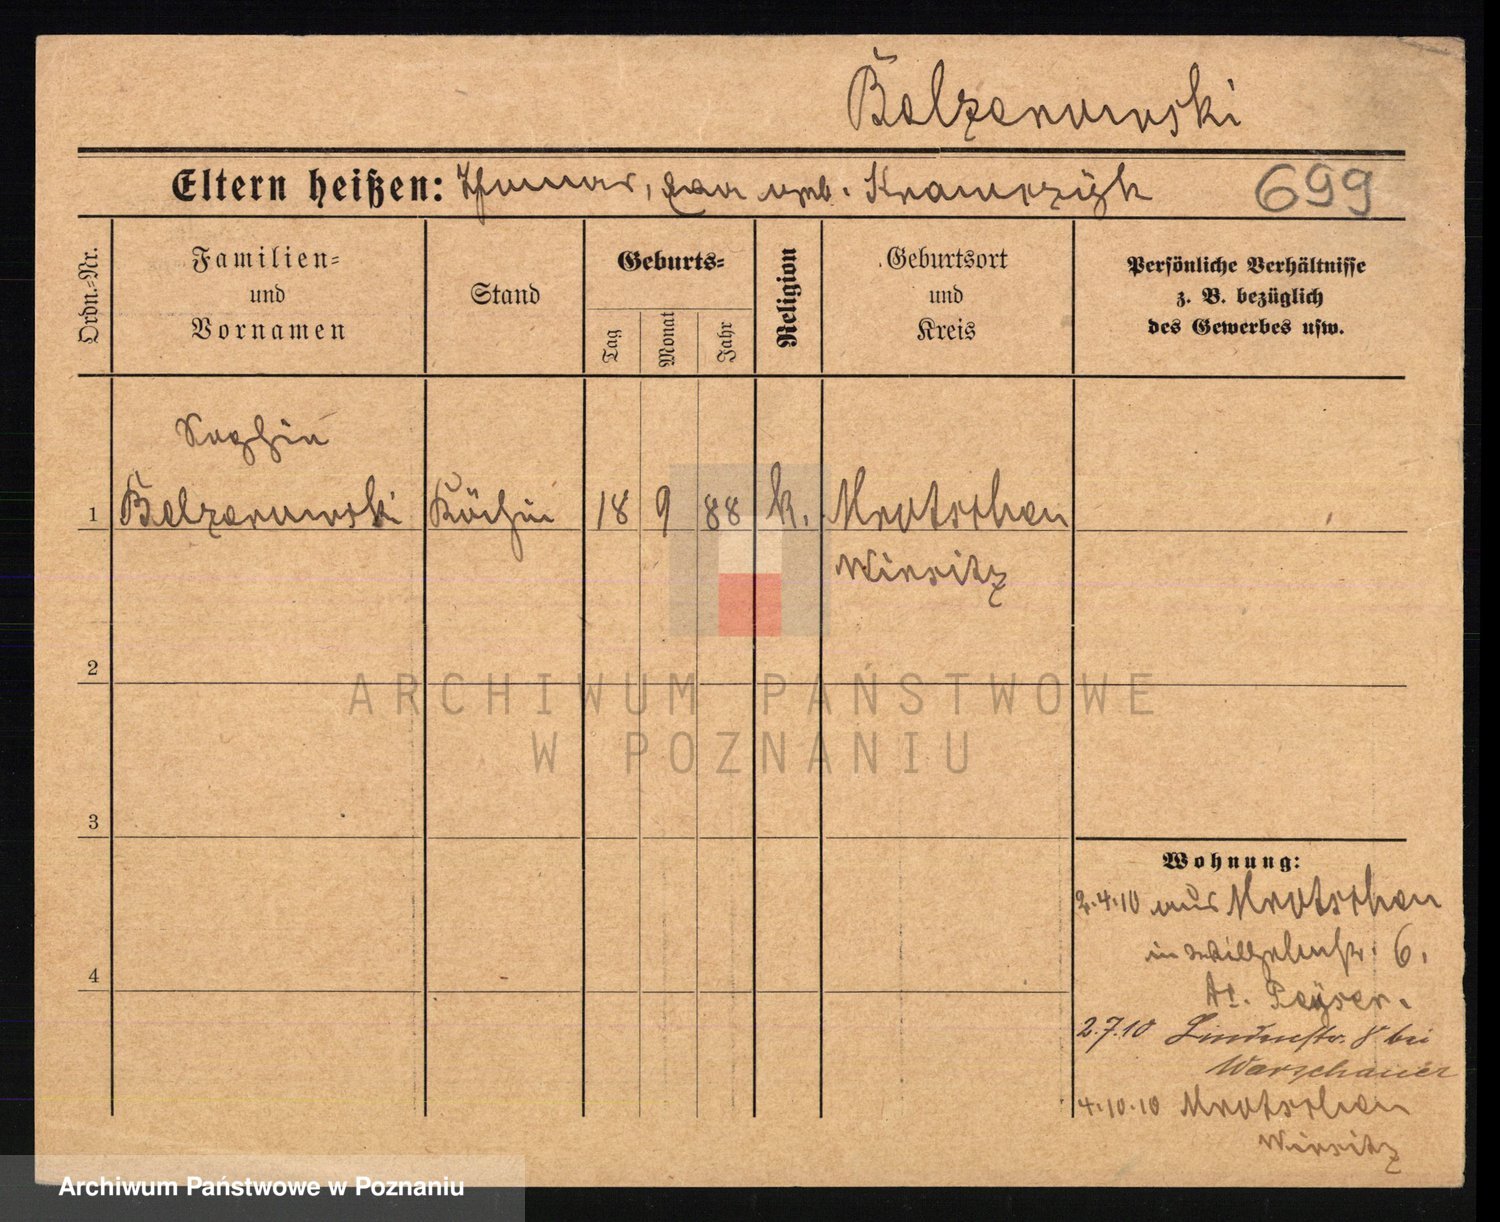 Balzerowski
Eltern heißen: Thomas, Eva geb. Krawczyk
699
Ordn.-Nr.
Familien-
und
Vornamen
Stand
Geburts-
Tag
Monat
Jahr
Religion
Geburtsort
und
Kreis
Persönliche Verhältnisse
z. B. bezüglich
des Gewerbes usw.
Sophie
1 Balzerowski Köchin 18 9 88 k. Mrotschen
Wirsitz
2
3
4
Wohnung:
2.4.10 aus Mrotschen
in Wilhelmstr. 6.
Peyser.
2.7.10 Lindenstr. 8 bei
Warschauer
4.10.10 Mrotschen
Wirsitz
ARCHIWUM PAŃSTWOWE
W POZNANIU
Archiwum Państwowe w Poznaniu